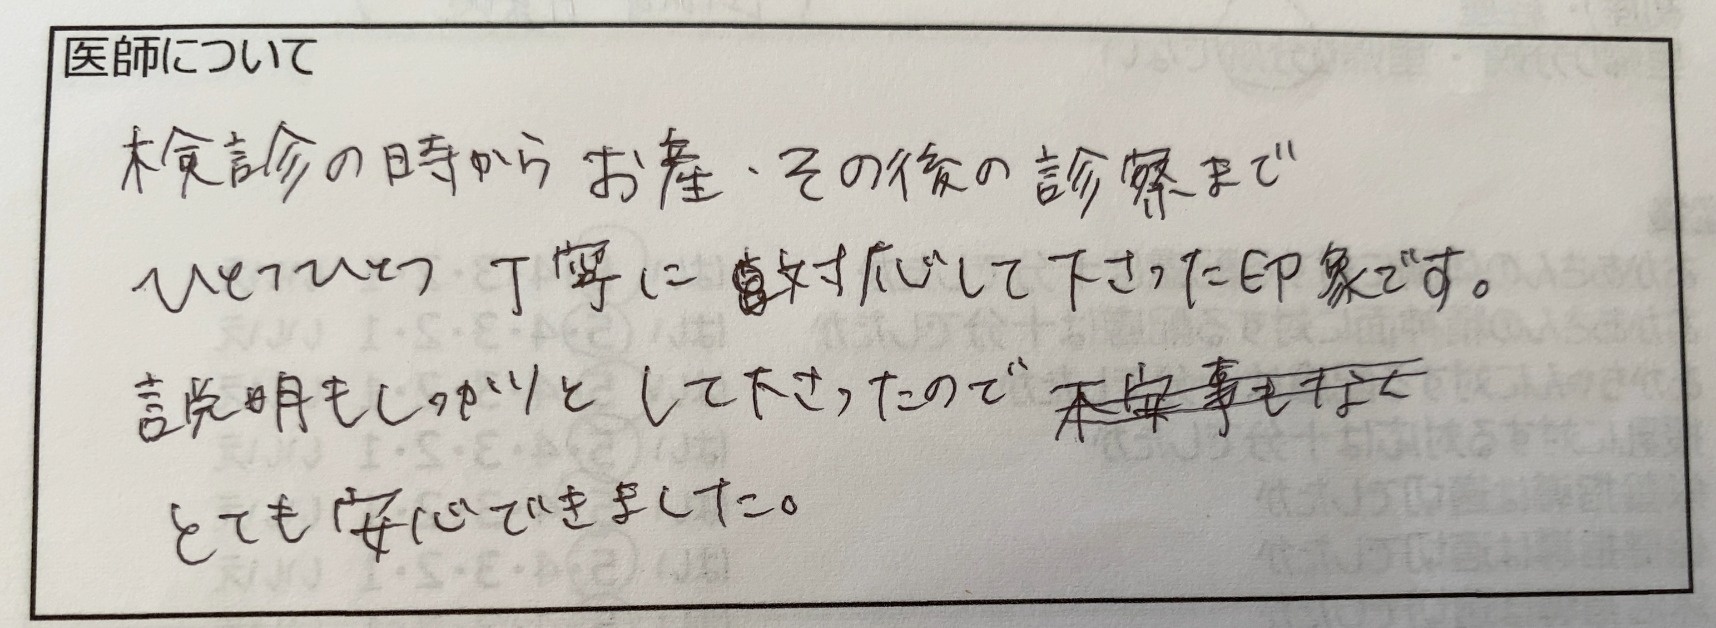 医師について
検診の時から お産・その後の診察まで
ひとつひとつ 丁寧に 対応して下さった印象です。
説明もしっかりと して下さったので 不安事もなく
とても安心できました。